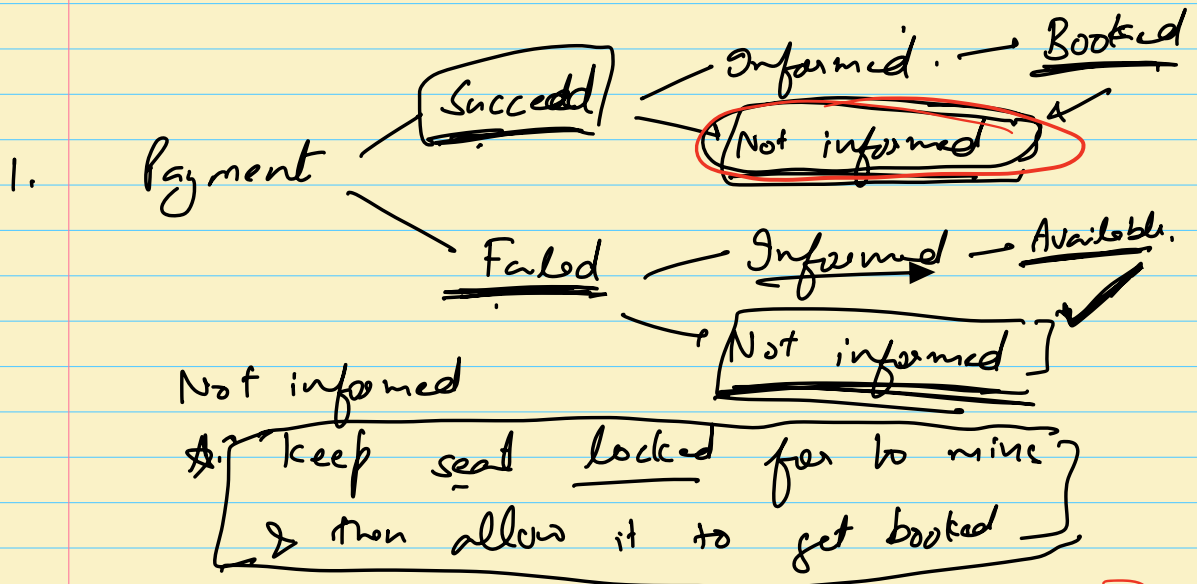 Succeedd
Informed. → Booked
Not informed
1. Payment
Failed
Informed
Available.
Not informed
Not informed
A. keep seat locked for 10 mins
& then allow it to get booked